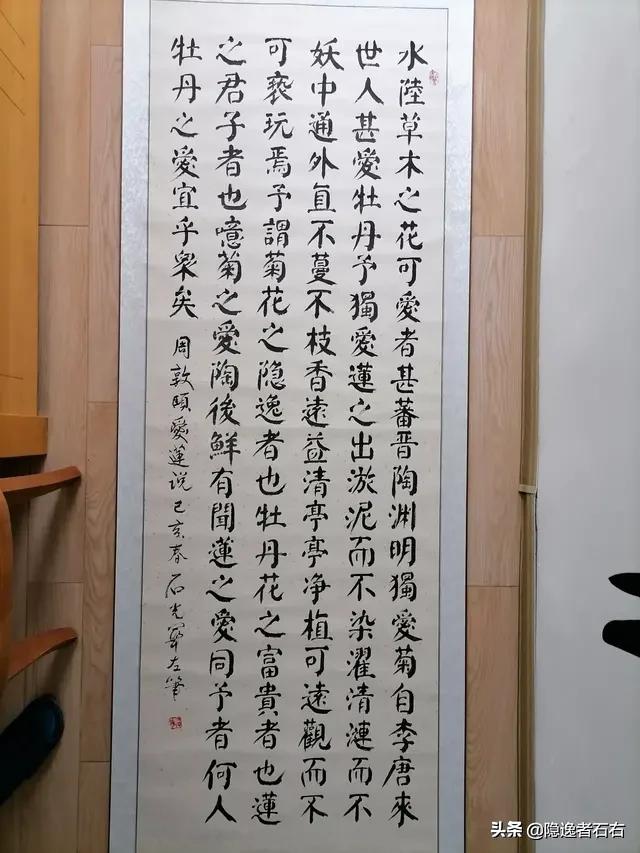 水陸草木之花可愛者甚蕃晋陶渊明獨愛菊自李唐來
世人甚愛牡丹予獨愛蓮之出淤泥而不染濯清漣而不
妖中通外直不蔓不枝香遠益清亭亭净植可遠觀而不
可亵玩焉予謂菊花之隐逸者也牡丹花之富貴者也蓮
之君子者也噫菊之愛陶後鮮有聞蓮之愛同予者何人
牡丹之愛宜乎衆矣 周敦頤愛蓮说 己亥春 石光左筆
头条 @隐逸者石右